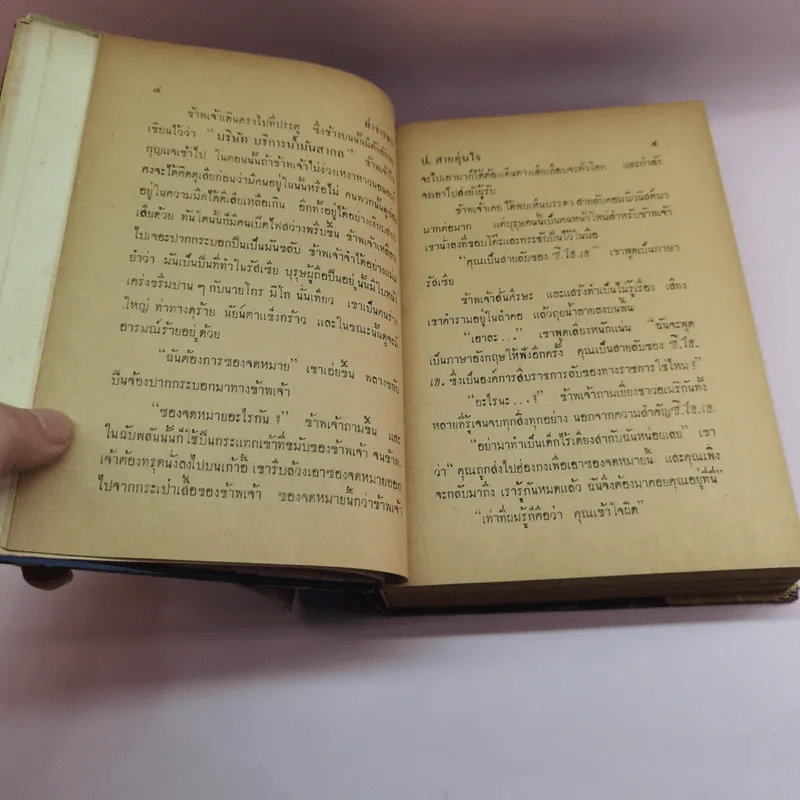 ๔
ข้าพเจ้าเดินตรงไปที่ประตู ซึ่งข้างบนนั้นมีตัวอักษร
เขียนไว้ว่า "บริษัท บริการน้ำมันสากล" ข้าพเจ้า
กุญแจเข้าไป ในตอนนั้นถ้าข้าพเจ้าไม่ง่วงเหงาหาวนอน
คงจะได้คิดดูเสียก่อนว่ามีคนอยู่ในนั้นหรือไม่ คนพวกนั้น
อยู่ในความมืดได้ดีเสียเหลือเกิน อีกทั้งอยู่ได้อย่างเงียบ
เสียด้วย ทันใดนั้นก็มีคนเปิดไฟสว่างพรึ่บขึ้น ข้าพเจ้า
ไปเจอะปากกระบอกปืนเป็นมันขลับ ข้าพเจ้าจำได้อย่าง
ย้ำว่า มันเป็นปืนที่ทำในรัสเซีย บุรุษผู้ถือปืนอยู่นั้นมีใบหน้า
เคร่งขรึมปาน ๆ กับนายโกร มิโก นั่นเทียว เขาเป็นคนร่าง
ใหญ่ ท่าทางดุร้าย นัยน์ตาแข็งกร้าว และในขณะนั้นดูจะมี
อารมณ์ร้ายอยู่ด้วย
"ฉันต้องการซองจดหมาย" เขาเอ่ยขึ้น พลางขยับ
ปืนจ้องปากกระบอกมาทางข้าพเจ้า
"ซองจดหมายอะไรกัน ?" ข้าพเจ้าถามขึ้น และ
ในฉับพลันนั้นก็ใช้ปืนกระแทกเข้าที่ขมับของข้าพเจ้า จนข้าพ
เจ้าต้องทรุดนั่งลงไปบนเก้าอี้ เขารีบล้วงเอาซองจดหมายออก
ไปจากกระเป๋าเสื้อของข้าพเจ้า ซองจดหมายนี้กว่าข้าพเจ้า
ป. สายคุ่นใจ ๕
จะไปเอามาก็ได้ต้องเดินทางเสียเกือบจะทั่วโลก และกำลัง
จะเอาไปส่งยังผู้รับ
ข้าพเจ้าเคย ได้พบเห็นบรรดา สายลับคอมมิวนิสต์มา
มากต่อมาก แต่บุรุษคนนี้เป็นคนหน้าใหม่สำหรับข้าพเจ้า
เขานั่งลงที่ขอบโต๊ะและกระชับปืนไว้ในมือ
"คุณเป็นสายลับของ ซี.ไอ.เอ." เขาพูดเป็นภาษา
รัสเซีย
ข้าพเจ้าสั่นศีรษะ และแสร้งทำเป็นไม่รู้เรื่อง เสียง
เขาคำรามอยู่ในลำคอ แล้วถุยน้ำลายลงบนพื้น
"เอาละ . . ." เขาพูดเสียงหนักแน่น "ฉันจะพูด
เป็นภาษาอังกฤษให้ฟังอีกครั้ง คุณเป็นสายลับของ ซี.ไอ.
เอ. ซึ่งเป็นองค์การสืบราชการลับของทางราชการใช่ไหม ?"
"อะไรนะ . . . ?" ข้าพเจ้าถามเยี่ยงชาวอเมริกันทั้ง
หลายที่รู้เจนจบทุกสิ่งทุกอย่าง นอกจากความสำคัญซี.ไอ.เอ.
"อย่ามาทำเป็นเด็กไร้เดียงสากับฉันหน่อยเลย" เขา
ว่า "คุณถูกส่งไปฮ่องกงเพื่อเอาซองจดหมายนี้ และคุณเพิ่ง
จะกลับมาถึง เรารู้กันหมดแล้ว ฉันจึงต้องมาคอยคุณอยู่ที่นี่"
"เท่าที่ผมรู้ก็คือว่า คุณเข้าใจผิด"